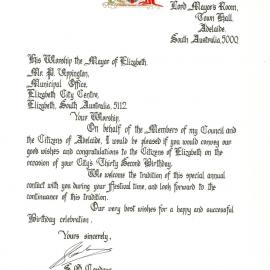 Lord Mayor's Room,
Town Hall,
Adelaide,
South Australia, 5000.
His Worship the Mayor of Elizabeth.
Mr. P. Uppington,
Municipal Office,
Elizabeth City Centre,
Elizabeth, South Australia, 5112.
Your Worship,
On behalf of the Members of my Council and
the Citizens of Adelaide, I would be pleased if you would convey our
good wishes and congratulations to the Citizens of Elizabeth on the
occasion of your City's Thirty Second Birthday.
We welcome the tradition of this special annual
contact with you during your Festival time, and look forward to the
continuance of this tradition.
Our very best wishes for a happy and successful
Birthday celebration.
Yours sincerely,